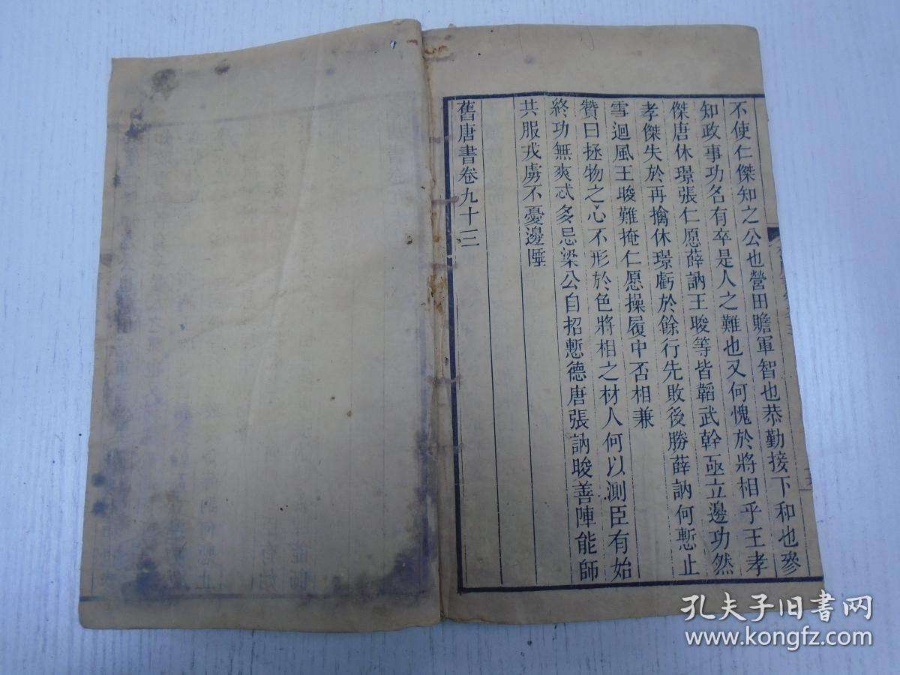 不使仁傑知之公也營田贍軍智也恭勤接下和也參
知政事功名有卒是人之難也又何愧於將相乎王孝
傑唐休璟張仁愿薛訥王晙等皆韜武幹亟立邊功然
孝傑失於再擒休璟虧於餘行先敗後勝薛訥何慙止
雪迴風王晙難掩仁愿操履中否相兼
贊曰拯物之心不形於色將相之材人何以測臣有始
終功無爽忒多忌梁公自招慙德唐張訥晙善陣能師
共服戎虜不憂邊陲
舊唐書卷九十三
孔夫子旧书网
www.kongfz.com